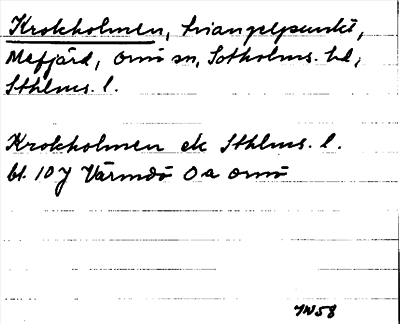 Krokholmen, triangelpunkt,
Mefjärd, Ornö sn, Sotholms hd,
Sthlms. l.
Krokholmen ek Sthlms. l.
bl 10 J Värmdö Oa Ornö
JW58